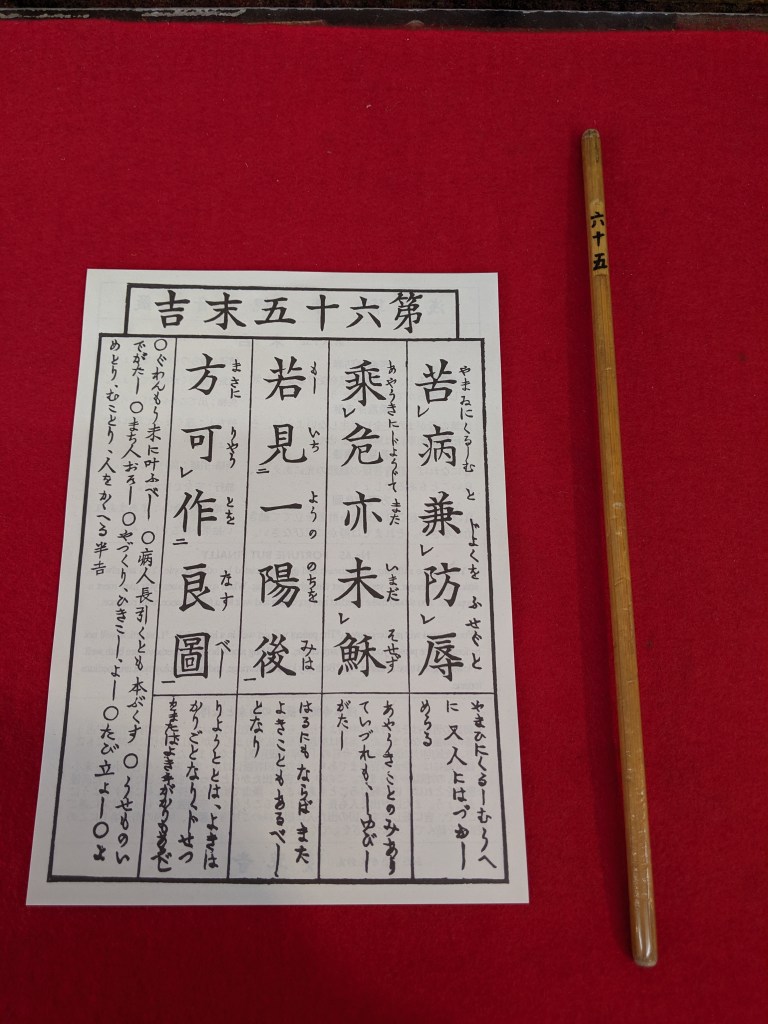 第六十五末吉
苦レ病兼レ防レ辱
やまゐにくるしむ と じよくを ふせぐと
乘レ危亦未レ穌
あやうきにじようじて また いまだ そせず
若見二一陽後一
もし いち ようの のちを みは
方可レ作二良圖一
まさに りやう とを なす べし
やまひにくるしむうへ
に又人にはづかし
めらる
あやうきことのみあり
ていづれも、しゆびし
がたし
はるにもならば また
よきこともあるべし
となり
りようととは、よきは
かりごとなりくじ せつ
よき手がかりもあるべし
〇ぐわんもう末に叶ふべし 〇病人長引くとも本ぷくす 〇うせものい
でがたし 〇まち人おそし 〇やづくり、ひきこし、よし 〇たび立よし〇よ
めとり、むことり、人をかゝへる半吉
六十五